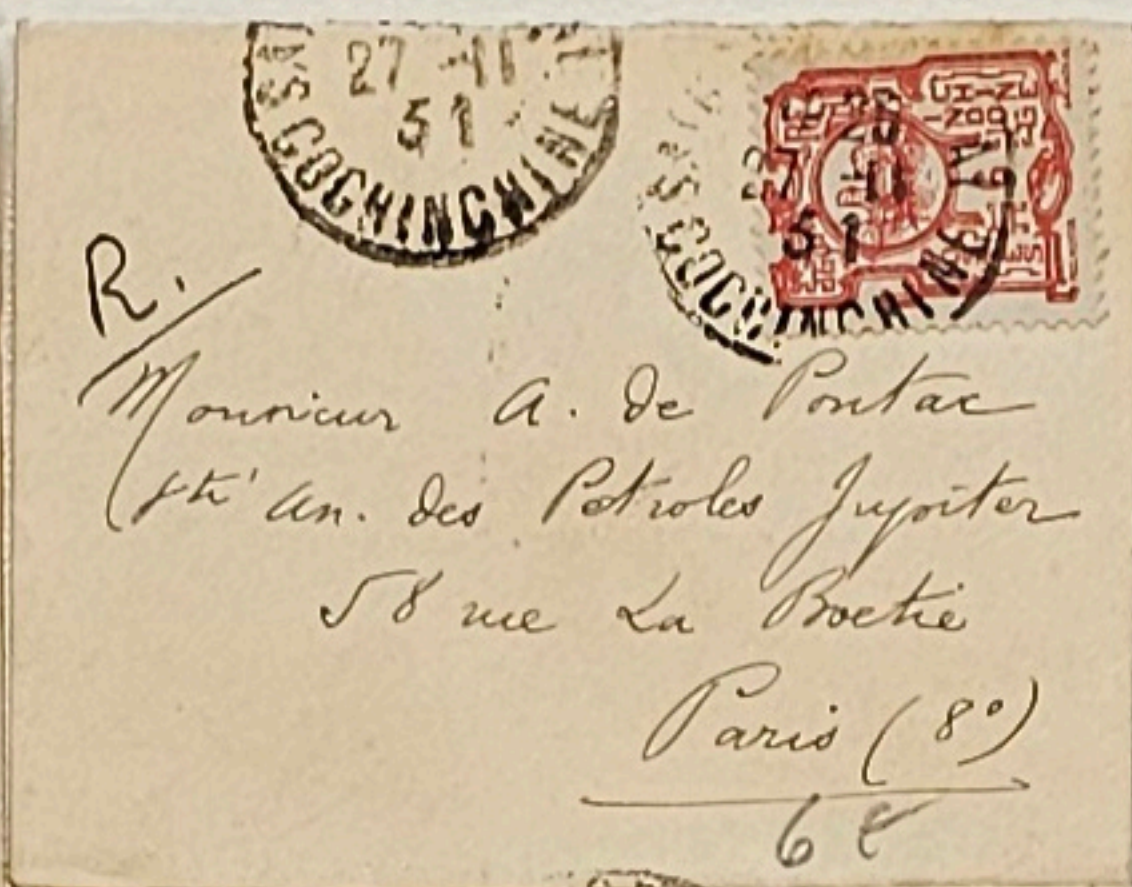 27 -11
31
COCHINCHINE
27 11
31
COCHINCHINE
R.
Monsieur A. de Pontac
Sté An. des Pétroles Jupiter
58 rue La Boetie
Paris (8°)
6 €